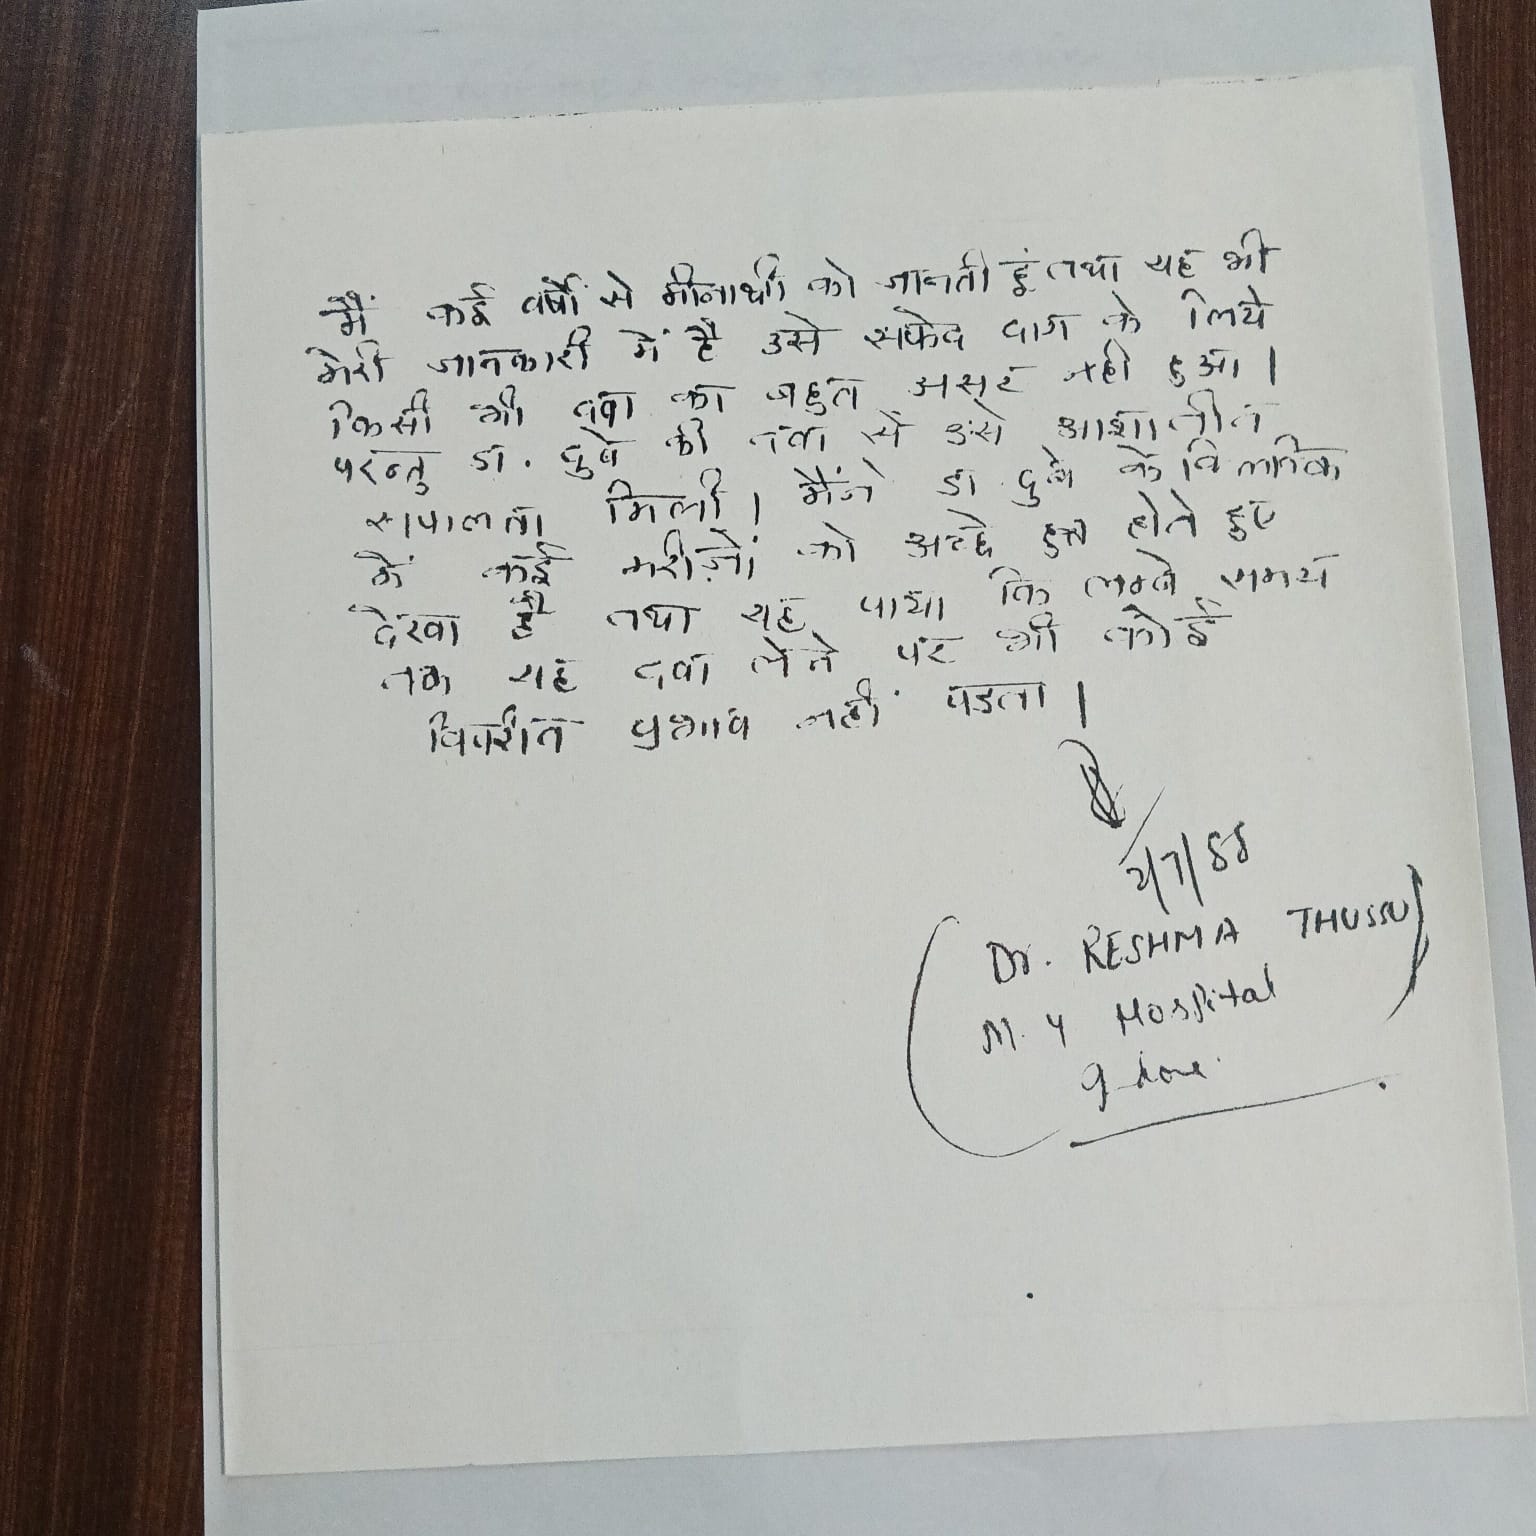 मैं कई वर्षो से मीनाक्षी को जानती हूं तथा यह भी
मेरी जानकारी में है उसे सफेद दाग के लिये
किसी भी दवा का बहुत असर नही हुआ।
परन्तु डा. दुबे की दवा से उसे आशातीत
सफलता मिली। मैंने डा. दुबे के क्लिनिक
में कई मरीज़ों को अच्छे होते हुए
देखा है तथा यह पाया कि लम्बे समय
तक यह दवा लेने पर भी कोई
विपरीत प्रभाव नहीं पडता।
2/7/88
(Dr. RESHMA THUSSU)
M. Y Hospital
Indore.